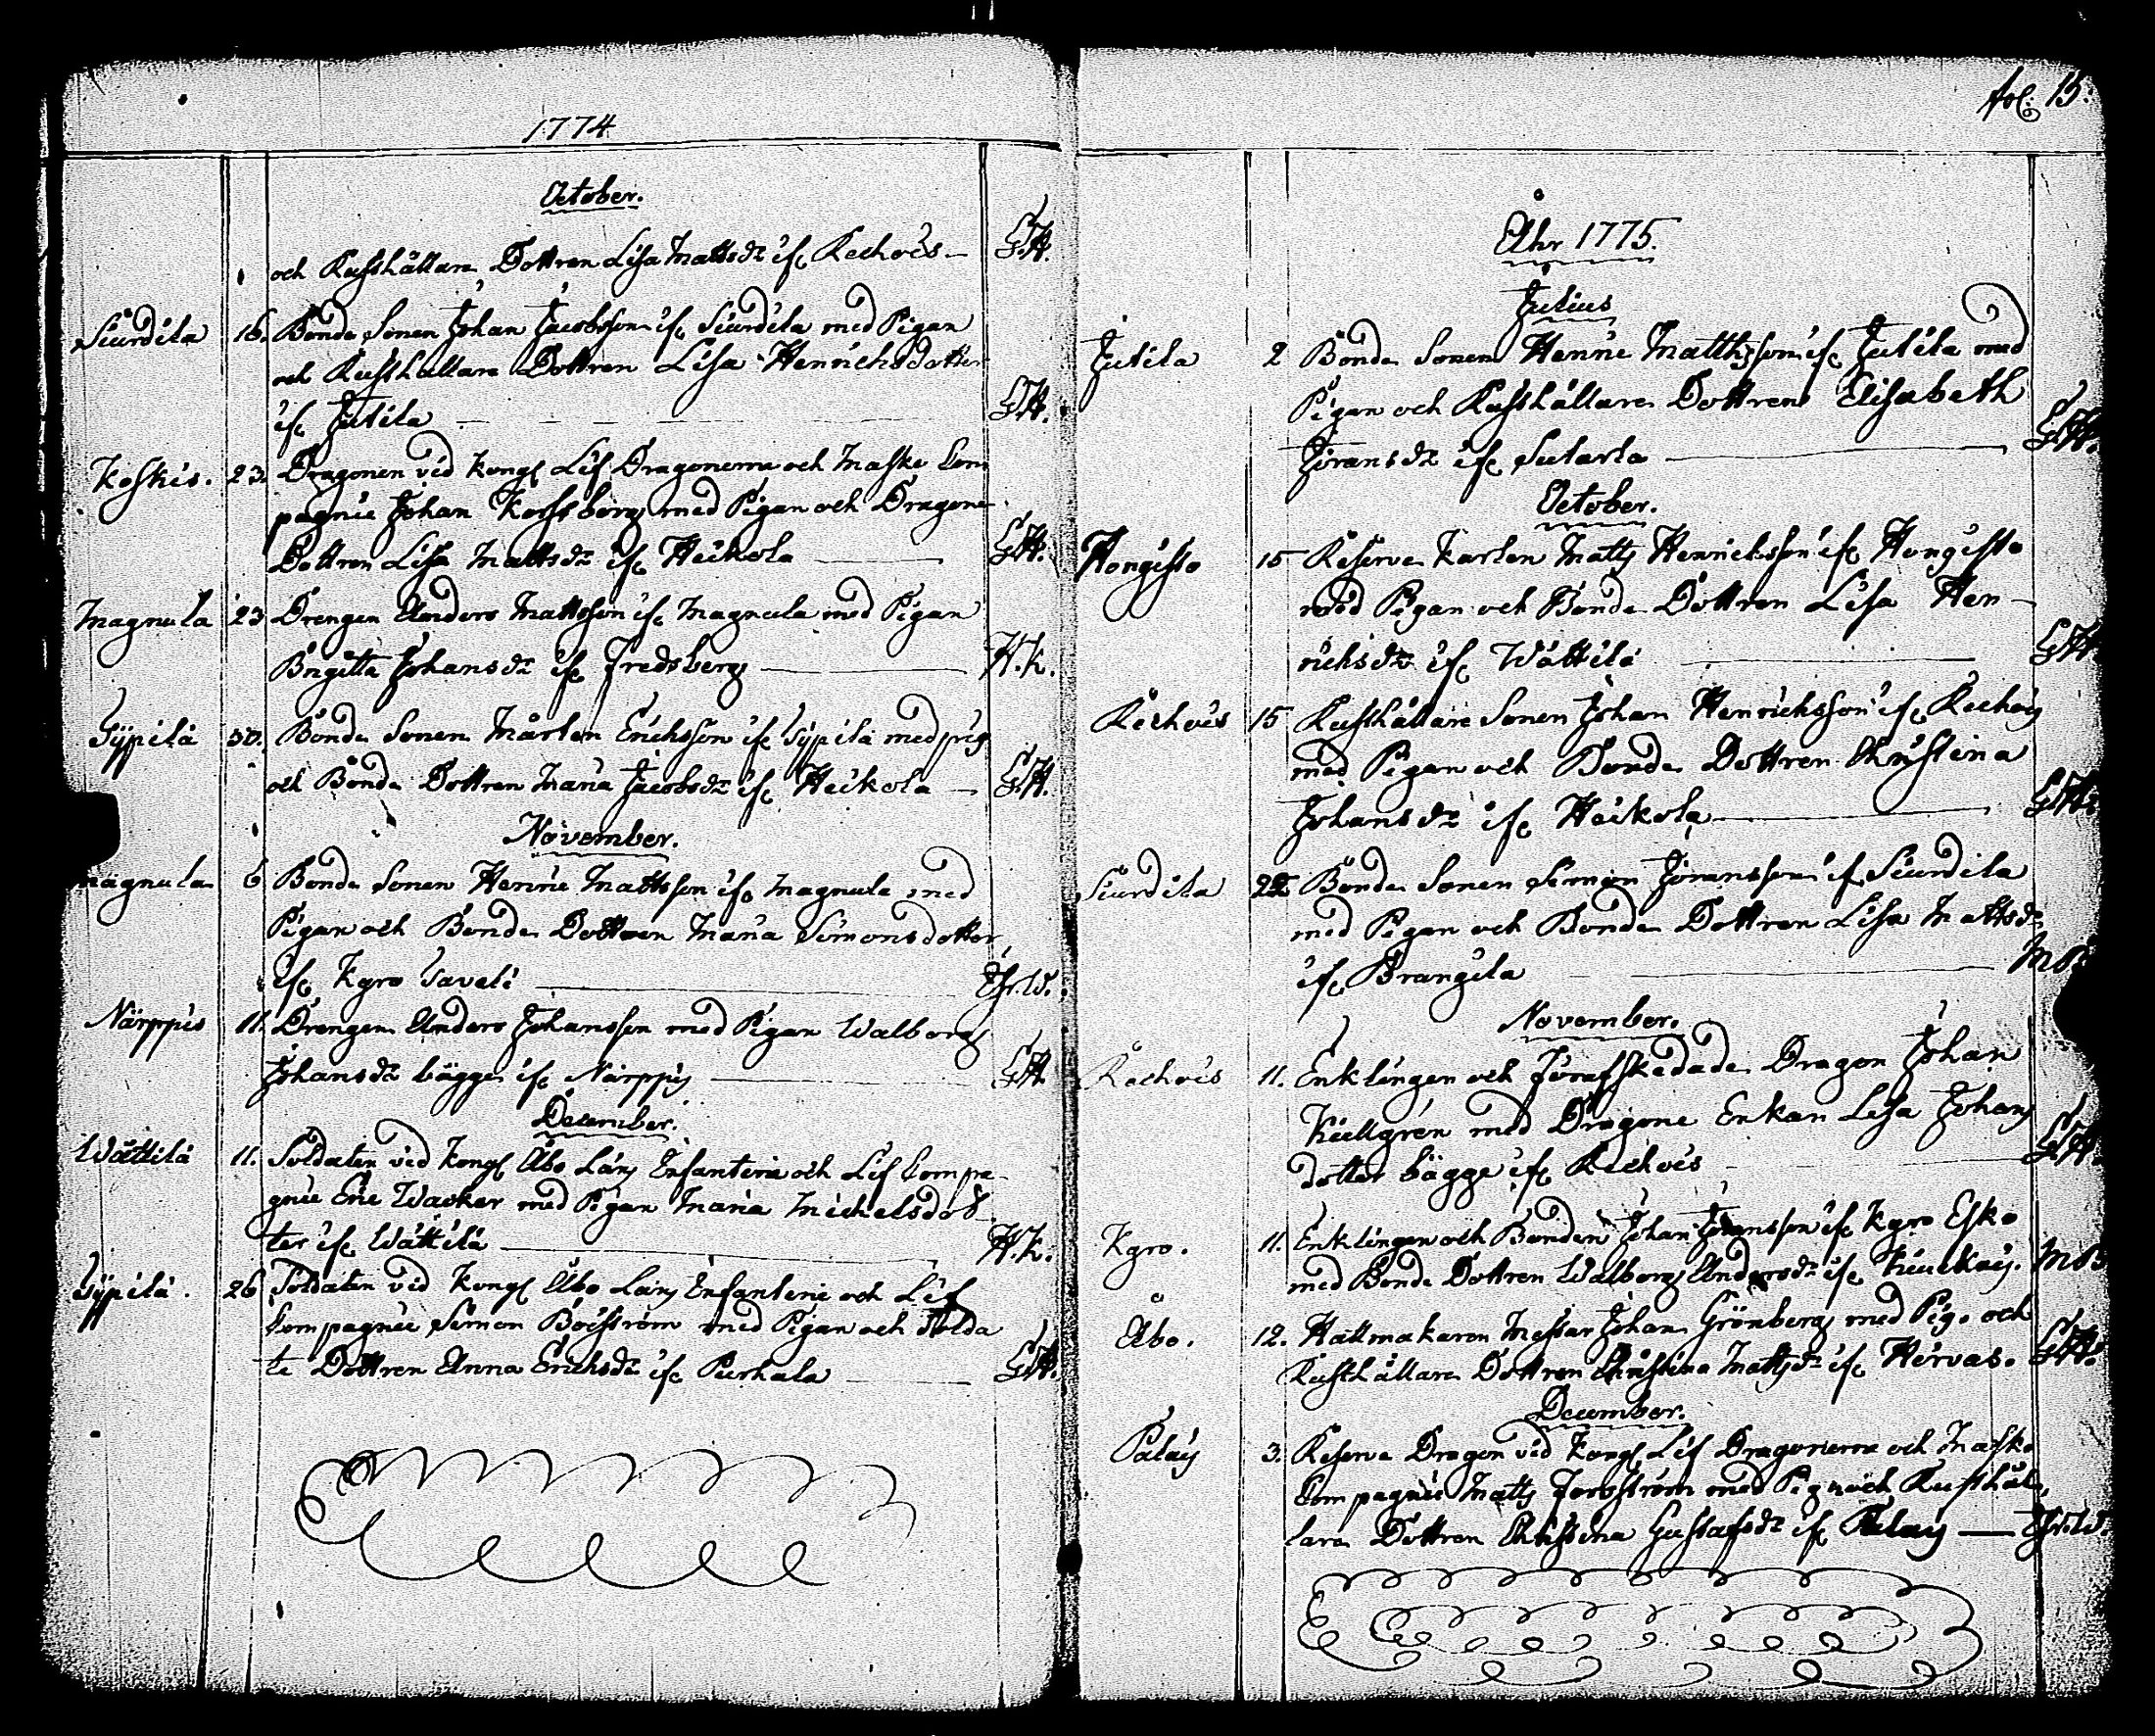 1774
October.
och Rusthållare Dottren Lisa Mattsdr ifr Rechois — G.H.
Siurdila 16. Bonde Sonen Johan Jacobsson ifr Siurdila med Pigan
och Rusthållare Dottren Lisa Henrichsdotter
ifr Jutila — G.H.
Koskis. 23. Dragonen vid Kongl Lif Dragonerne och Masko Com
pagnie Johan Korssberg med Pigan och Dragone
Dottren Lisa Mattsdr ifr Heikola — G.H.
Magnula 23 Drengen Anders Mattsson ifr Magnula med Pigan
Brigitta Johansdr ifr Fredsberg — H.K.
Sÿpilä 30. Bonde Sonen Mårten Erichsson ifr Sÿpilä med pig
och Bonde Dottren Maria Jacobsdr ifr Heikola — G.H.
November.
Magnula 6 Bonde Sonen Henric Mattsson ifr Magnula med
Pigan och Bonde Dottren Maria Simonsdotter
ifr Kyro Saveli — Thr.W.
Närppis 11. Drengen Anders Johansson med Pigan Walborg
Johansdr bägge ifr Närppis — G.H.
December.
Wättilä 11. Soldaten vid Kongl Åbo Läns Infanterie och Lif Compa
gnie Eric Wacker med Pigan Maria Michelsdot
ter ifr Wättilä — H.K.
Sÿpilä. 26 Soldaten vid Kongl Åbo Läns Enfanterie och Lif
Compagnie Simon Boiström med Pigan och Solda
te Dottren Anna Erichsdr ifr Purhala — G.H.
fol: 15.
Åhr 1775.
Julius
Jutila 2 Bonde Sonen Henric Matthsson ifr Jutila med
Pigan och Rusthållare Dottren Elisabeth
Jöransdr ifr Sutarla — G.H.
October.
Hongisto 15 Reserve Karlen Matts Henrichsson ifr Hongisto
med Pigan och Bonde Dottren Lisa Hen-
richsdr ifr Wättilä — G.H.
Rechois 15 Rusthållare Sonen Johan Henrichsson ifr Rechois
med Pigan och Bonde Dottren Christina
Johansdr ifr Heikola — G.H.
Siurdila 22 Bonde Sonen Simon Jöransson if Siurdila
med Pigan och Bonde Dottren Lisa Mattsdr
ifr Brangila — MB
November.
Rechois 11. Enklingen och förafskedade Dragon Johan
Kiellgren med Dragone Enkan Lisa Johans
dotter bägge ifr Rechois — G.H.
Kyro. 11. Enklingen och Bonden Johan Johansson ifr Kyro Esko
med Bonde Dottren Walborg Andersdr ifr MB
Åbo. 12. Hattmakaren Mestar Johan Grönberg med Pig. och
Rusthållare Dottren Christina Mattsdr ifr Hervas. G.H.
December.
Palais 3. Reserve Dragon vid Kongl Lif Dragonerne och Masko
Compagnie Matts Forsström med Pigan och Rusthål
lare Dottren Christina Gustafsdr ifr Palais — Thr.W.